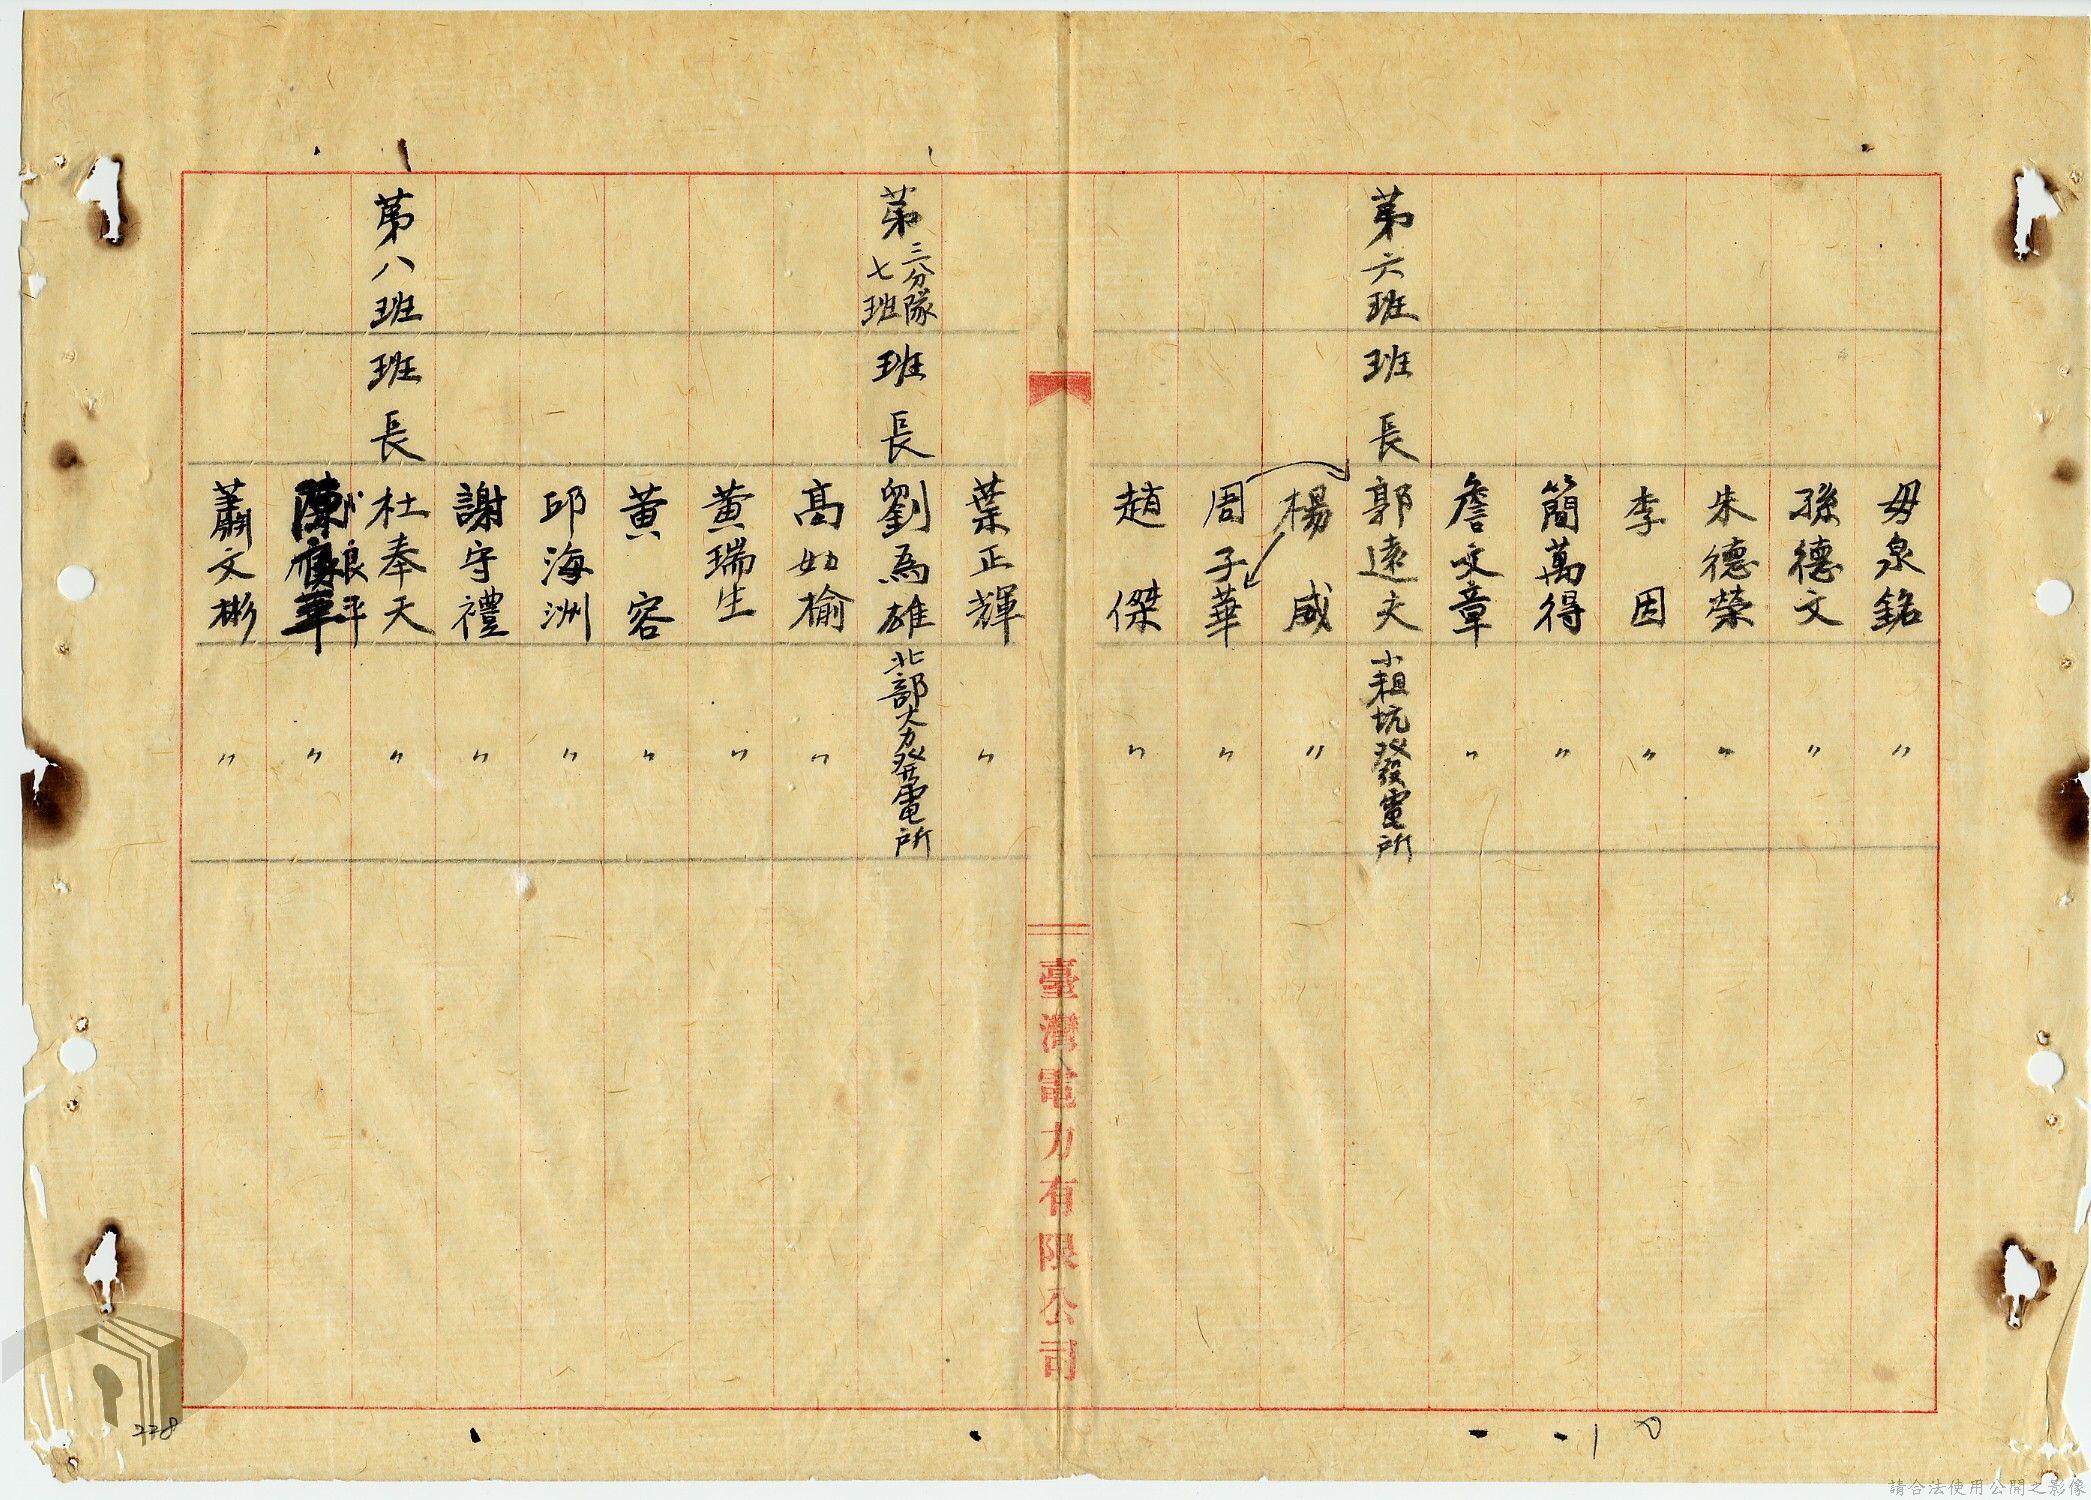 毋泉銘 〃
孫德文 〃
朱德榮 〃
李因 〃
簡萬得 〃
詹文章 〃
第六班 班長 郭遠夫 小粗坑發電所
楊威 〃
周子華 〃
趙傑 〃
臺灣電力有限公司
葉正輝 〃
第三分隊七班 班長 劉為雄 北部火力發電所
高幼榆 〃
黃瑞生 〃
黃容 〃
邱海洲 〃
謝守禮 〃
第八班 班長 杜奉天 〃
良平 〃
蕭文彬 〃
228
請合法使用公開之影像